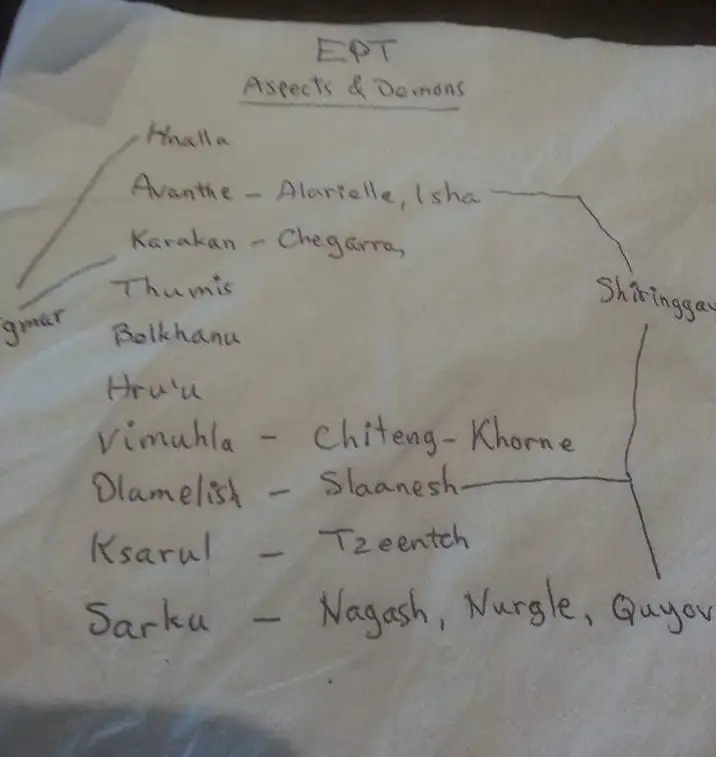 EPT
Aspects & Demons
Hnalla
Avanthe - Alarielle, Isha
Karakan - Chegarra,
Thumis
gmar
Shiringgay
Belkhanu
Hru'u
Vimuhla - Chiteng - Khorne
Dlamelish - Slaanesh
Ksarul - Tzeentch
Sarku - Nagash, Nurgle, Quyov